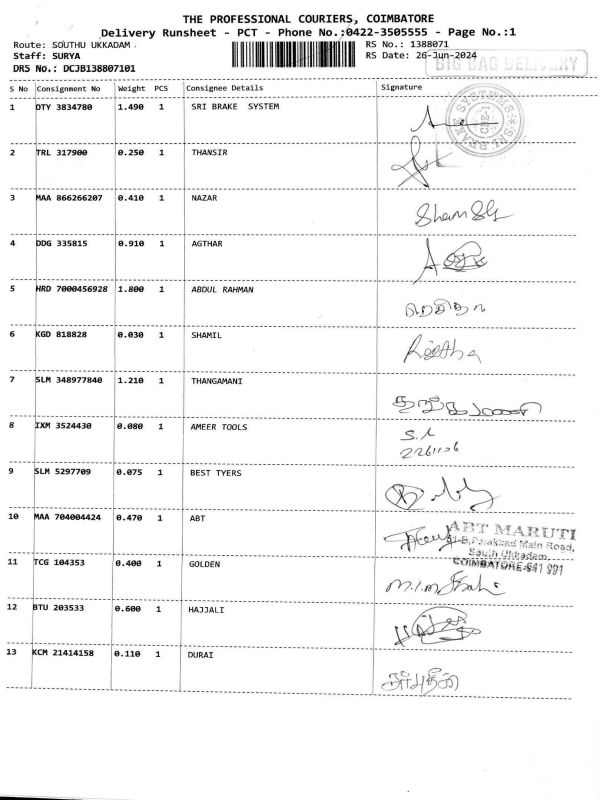 THE PROFESSIONAL COURIERS, COIMBATORE
Delivery Runsheet - PCT - Phone No.:0422-3505555 - Page No.:1
Route: SOUTHU UKKADAM RS No.: 1388071
Staff: SURYA RS Date: 26-Jun-2024
DRS No.: DCJB138807101 BIG BAG DELIVERY
S No Consignment No Weight PCS Consignee Details Signature
1 DTY 3834780 1.490 1 SRI BRAKE SYSTEM
SRI BRAKE SYSTEMS CBE-1
2 TRL 317900 0.250 1 THANSIR
3 MAA 866266207 0.410 1 NAZAR
4 DDG 335815 0.910 1 AGTHAR
5 HRD 7000456928 1.800 1 ABDUL RAHMAN
6 KGD 818828 0.030 1 SHAMIL
7 SLM 348977840 1.210 1 THANGAMANI
8 IXM 3524430 0.080 1 AMEER TOOLS
9 SLM 5297709 0.075 1 BEST TYERS
10 MAA 704004424 0.470 1 ABT ABT MARUTI
Palakkad Main Road,
South Ukkadam,
COIMBATORE-641 001
11 TCG 104353 0.400 1 GOLDEN
12 BTU 203533 0.600 1 HAJJALI
13 KCM 21414158 0.110 1 DURAI